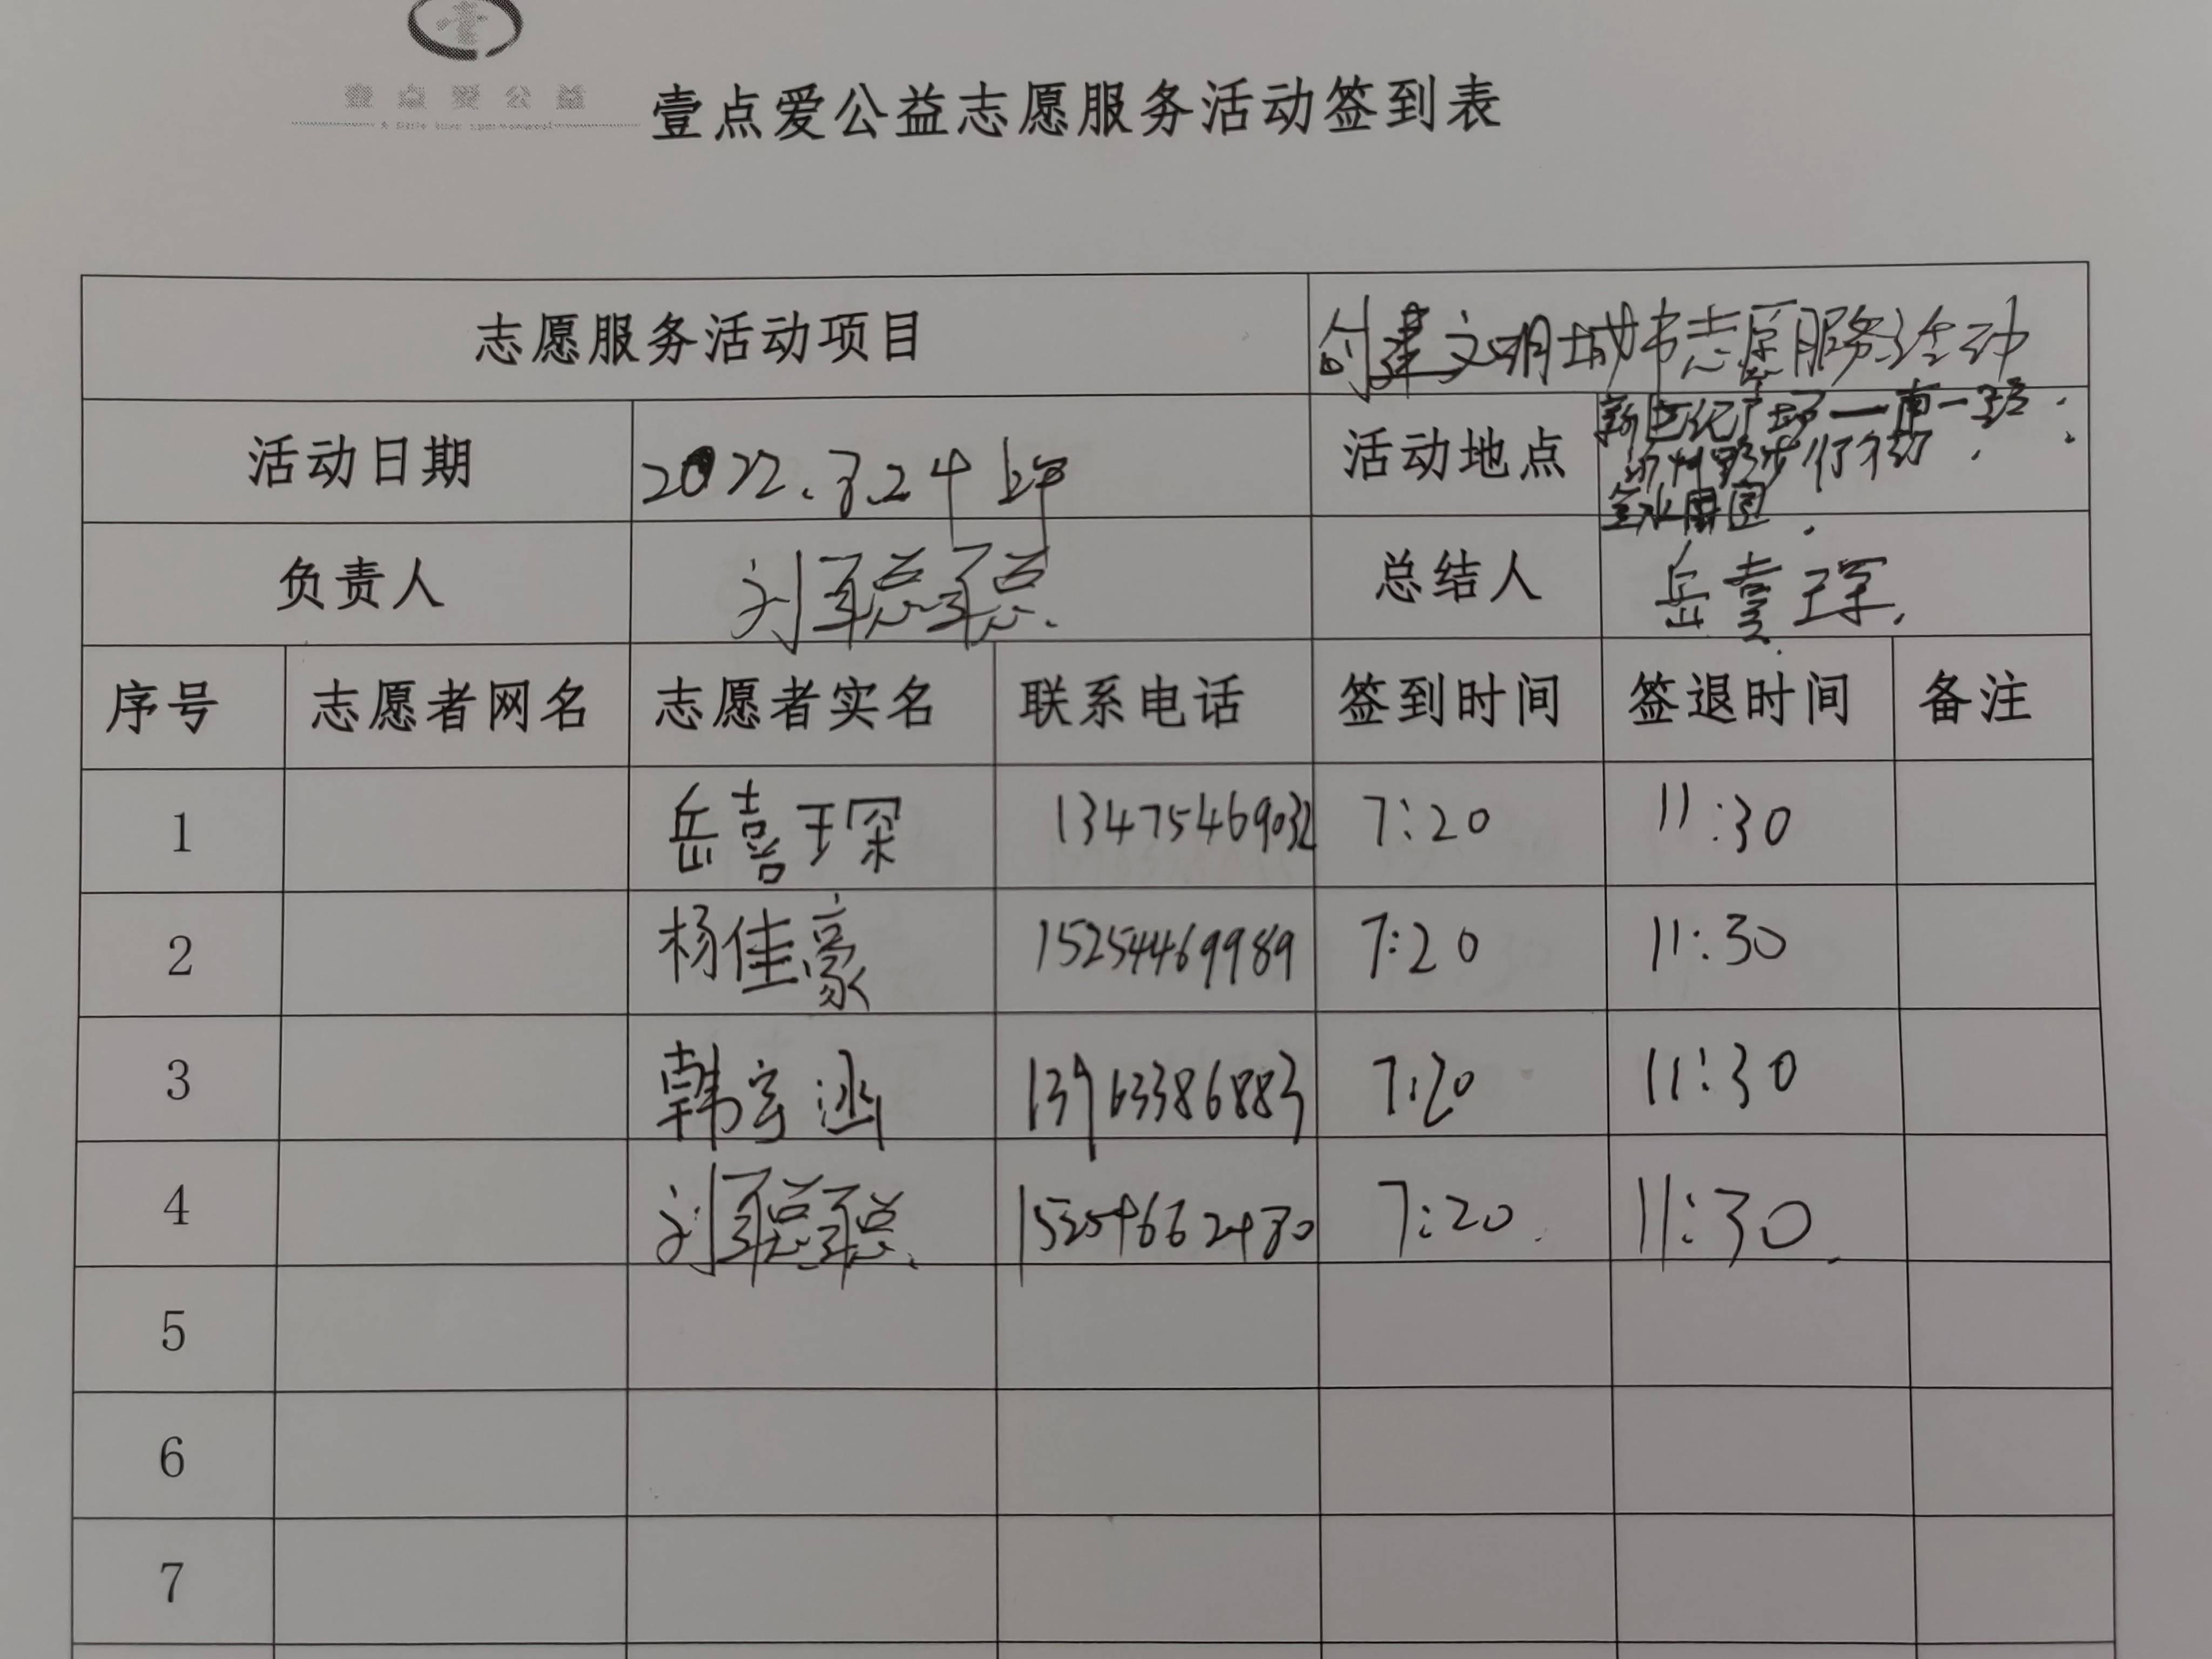 壹点爱公益
壹点爱公益志愿服务活动签到表
志愿服务活动项目 创建文明城市志愿服务活动
活动日期 2022.3.24 上午 活动地点 新世纪广场一南一路
负责人 刘聪聪 总结人 岳喜琛
序号 志愿者网名 志愿者实名 联系电话 签到时间 签退时间 备注
1 岳喜琛 13475469032 7:20 11:30
2 杨佳豪 15254469989 7:20 11:30
3 韩宇涵 13963386883 7:20 11:30
4 刘聪聪 15254662480 7:20 11:30
5
6
7